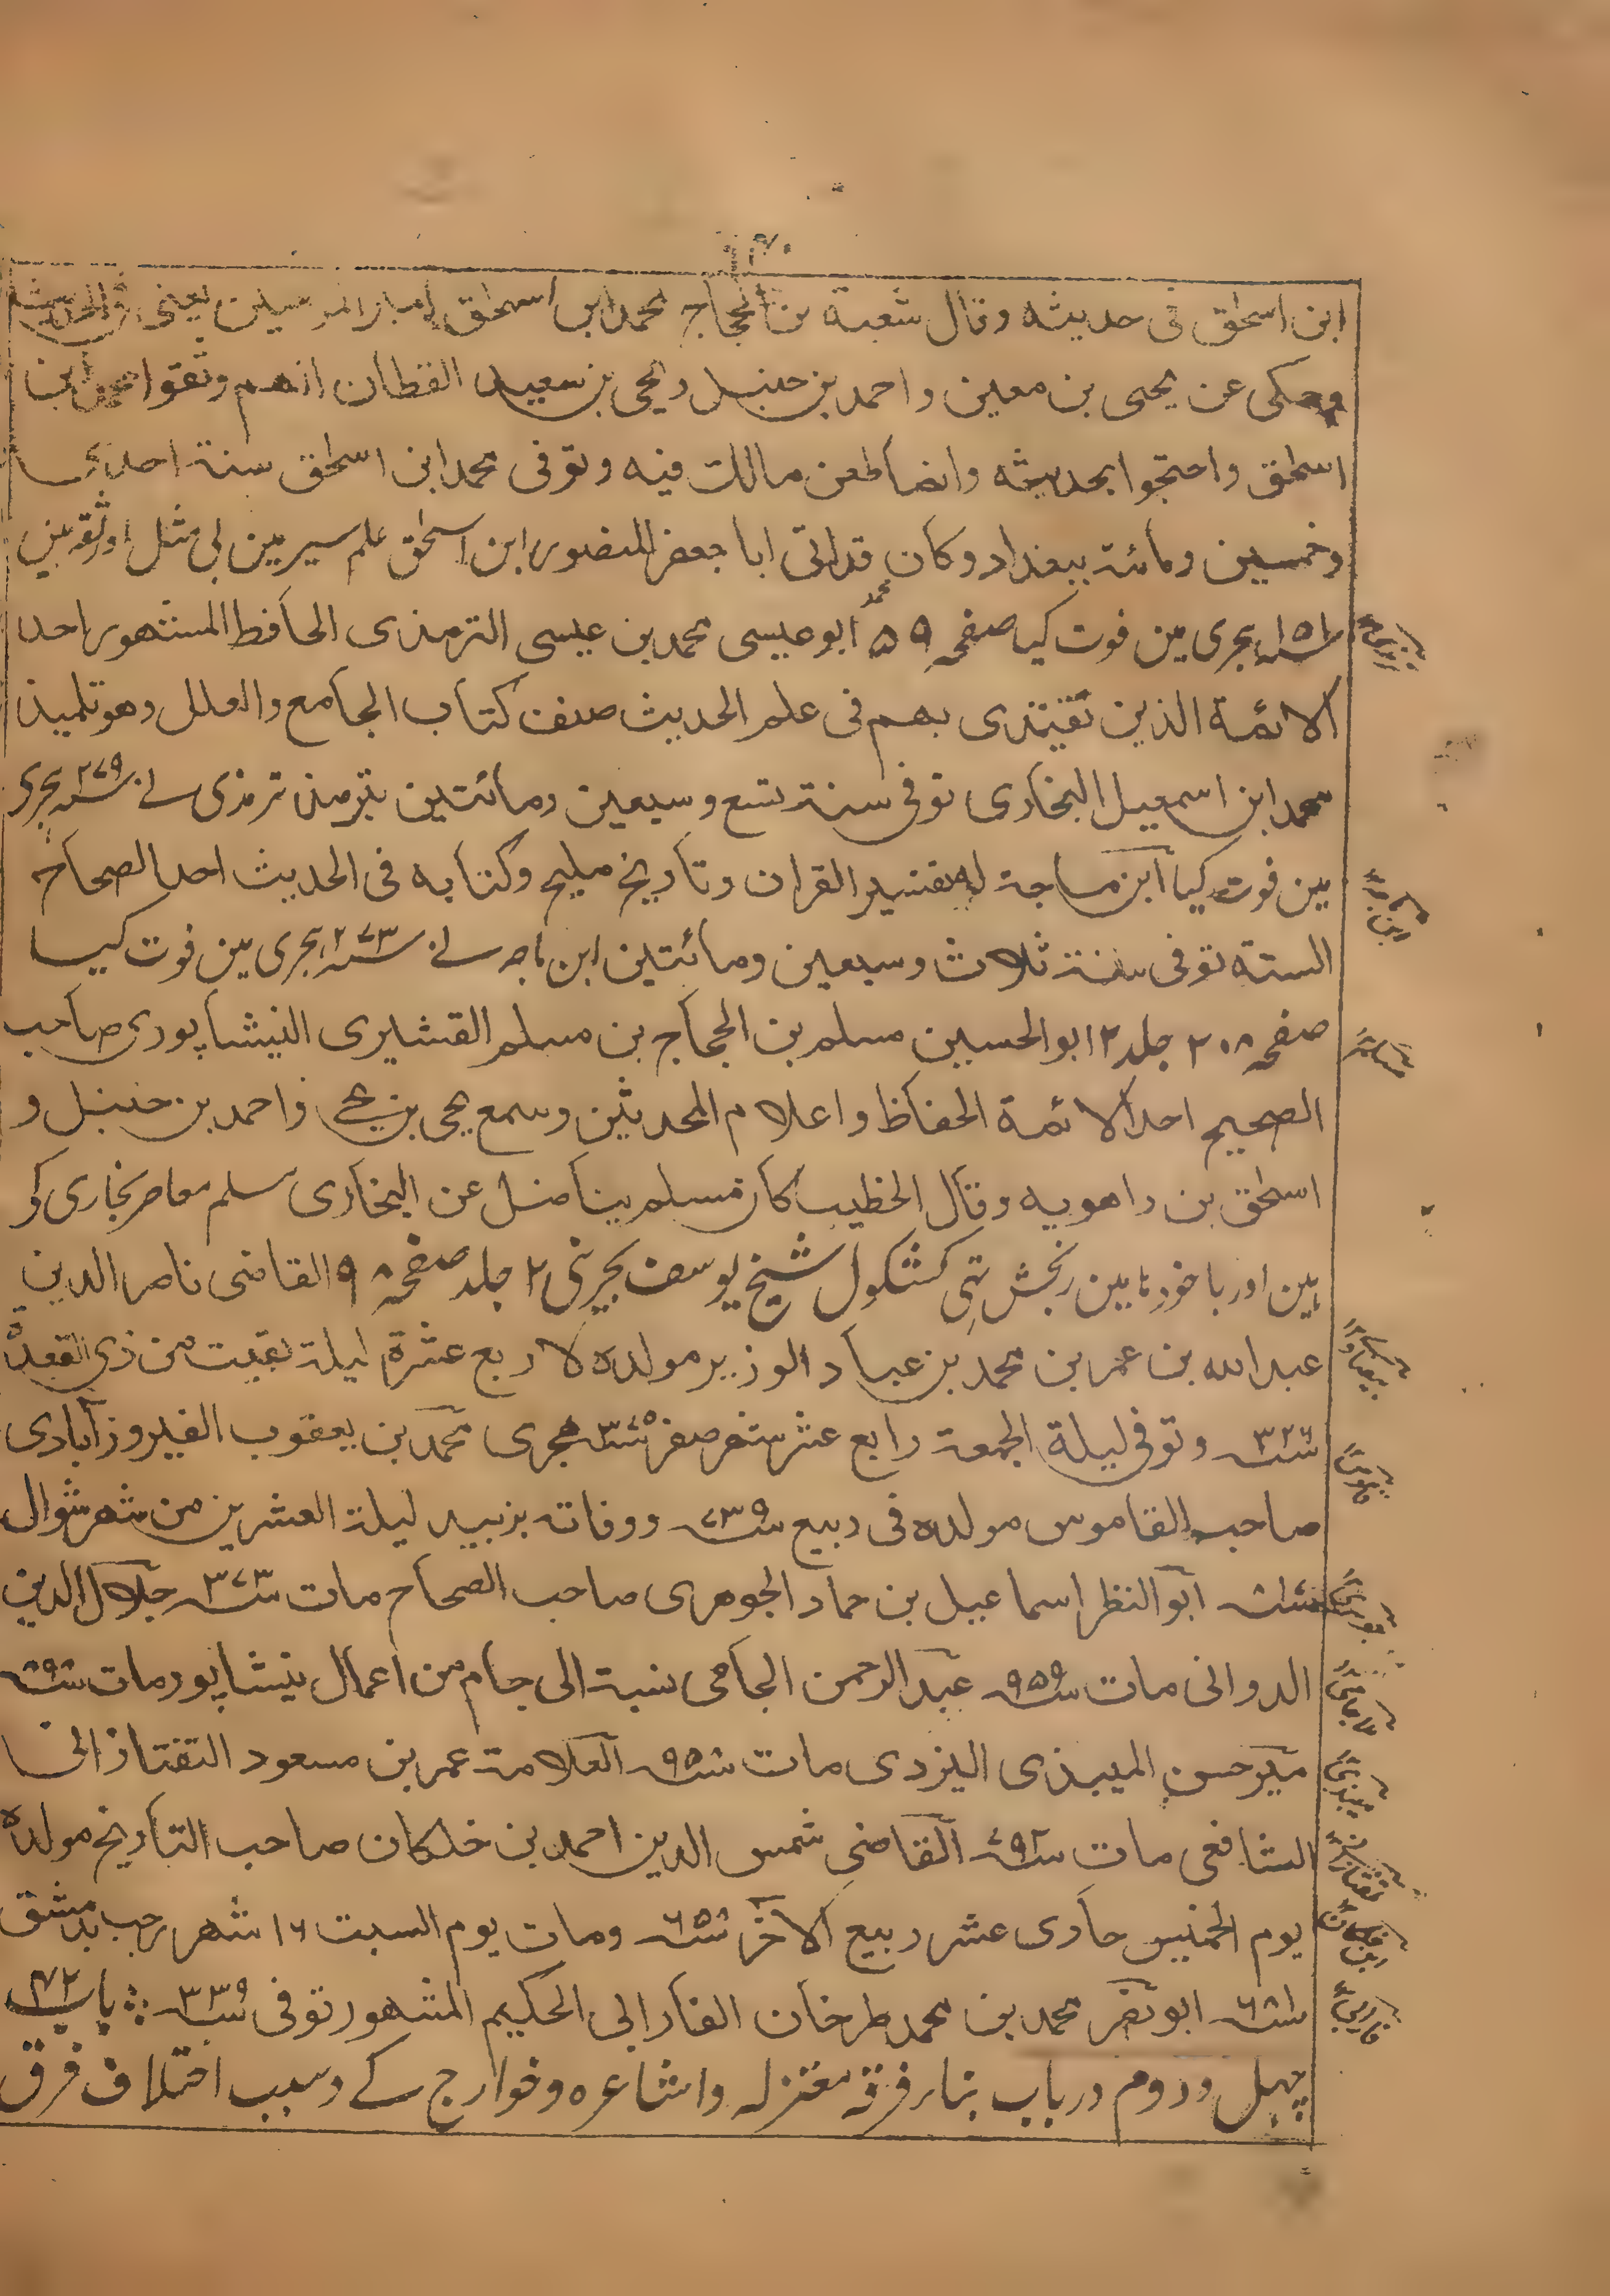 ابن اسحٰق فی حدیثه وقال شعبة بن الحجاج محمد ابن اسحٰق یعنی فی الحدیث
وحکی عن یحیی بن معین واحمد بن حنبل ویحی بن سعید القطان انهم وثقوا محمد ابن
اسحٰق واحتجوا بحدیثه وانما طعن مالك فیه وتوفی محمد ابن اسحٰق سنة احدی
وخمسین ومائة ببغداد وکان قد اتی ابا جعفر المنصور ابن اسحٰق علم سیر مین بی مثل اور ثقه ہیں
۱۵۱ ہجری مین فوت کیا صفحہ ۵۹ ابو عیسی محمد بن عیسی الترمذی الحافظ المشهور احد
الائمة الذین تقیتدی بهم فی علم الحدیث صنف کتاب الجامع والعلل وهو تلمیذ
محمد ابن اسمعیل البخاری توفی سنة تسع وسبعین ومائتین بترمذ ترمذی نے ۲۷۹ ہجری
مین فوت کیا ابن ماجة له تفسیر القران وتاریخ ملیح وکتابه فی الحدیث احد الصحاح
الستة توفی سنة ثلاث وسبعین ومائتین ابن ماجہ نے ۲۷۳ ہجری مین فوت کیا
صفحہ ۲۰۸ جلد ۲ ابو الحسین مسلم بن الحجاج بن مسلم القشیری النیشاپوری صاحب
الصحیح احد الائمة الحفاظ واعلام المحدثین وسمع یحی بن یحی واحمد بن حنبل و
اسحٰق بن راهویه وقال الخطیب کان مسلم یناضل عن البخاری مسلم معاصر بخاری کی
ہین اور باخود ہا مین رنجش تہی کشکول شیخ یوسف بحرینی ۲ جلد صفحہ ۹۸ القاضی ناصر الدین
عبد الله بن عمر بن محمد بن عباد الوزیر مولده لاربع عشرة لیلة بقیت من ذی القعدة
۳۲۶ وتوفی لیلة الجمعة رابع عشر شهر صفر هجری محمد بن یعقوب الفیروزآبادی
صاحب القاموس مولده فی ربیع ۷۳۹ ووفاته بزبید لیلة العشرین من شهر شوال
ابو النظر اسماعیل بن حماد الجوهری صاحب الصحاح مات ۳۷۳ جلال الدین
الدوانی مات ۹۵۹ عبد الرحمن الجامی نسبة الی جام من اعمال نیشاپور مات
میر حسن المیبذی الیزدی مات العلامة عمر بن مسعود التفتازانی
الشافعی مات ۷۹۲ القاضی شمس الدین احمد بن خلکان صاحب التاریخ مولده
یوم الخمیس حادی عشر ربیع الاخر ومات یوم السبت ۱۶ شهر رجب بدمشق
۶۸۱ ابو نصر محمد بن محمد طرخان الفارابی الحکیم المشهور توفی ۳۳۹ باب ۴۲
چہل و دوم درباب بناء فرقہ معتزلہ واشاعرہ وخوارج کے وسبب اختلاف فرق